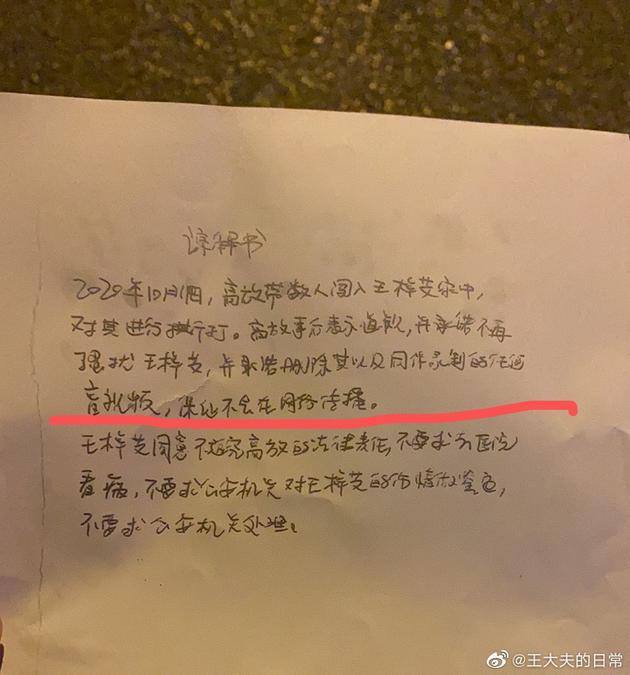 谅解书
2020年10月1日，高放带数人闯入王梓芠家中，
对其进行殴打。高放事后表示道歉，并承诺不再
骚扰王梓芠，并承诺删除其以及同伙录制的任何
音视频，保证不会在网络传播。
王梓芠同意不追究高放的法律责任，不要求去医院
看病，不要求公安机关对王梓芠的伤情做鉴定，
不要求公安机关处理。
@王大夫的日常